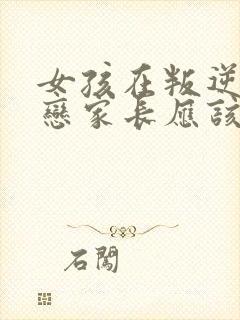 女孩在叛逆
戀家長應該
石闖